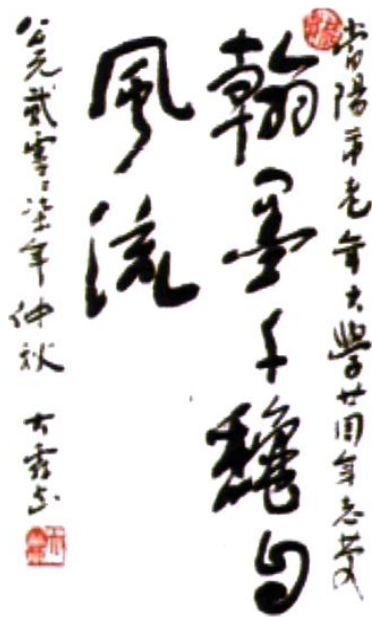 當陽市老年大學廿周年志慶
翰墨千龝自
風流
公元貳零零柒年仲秋